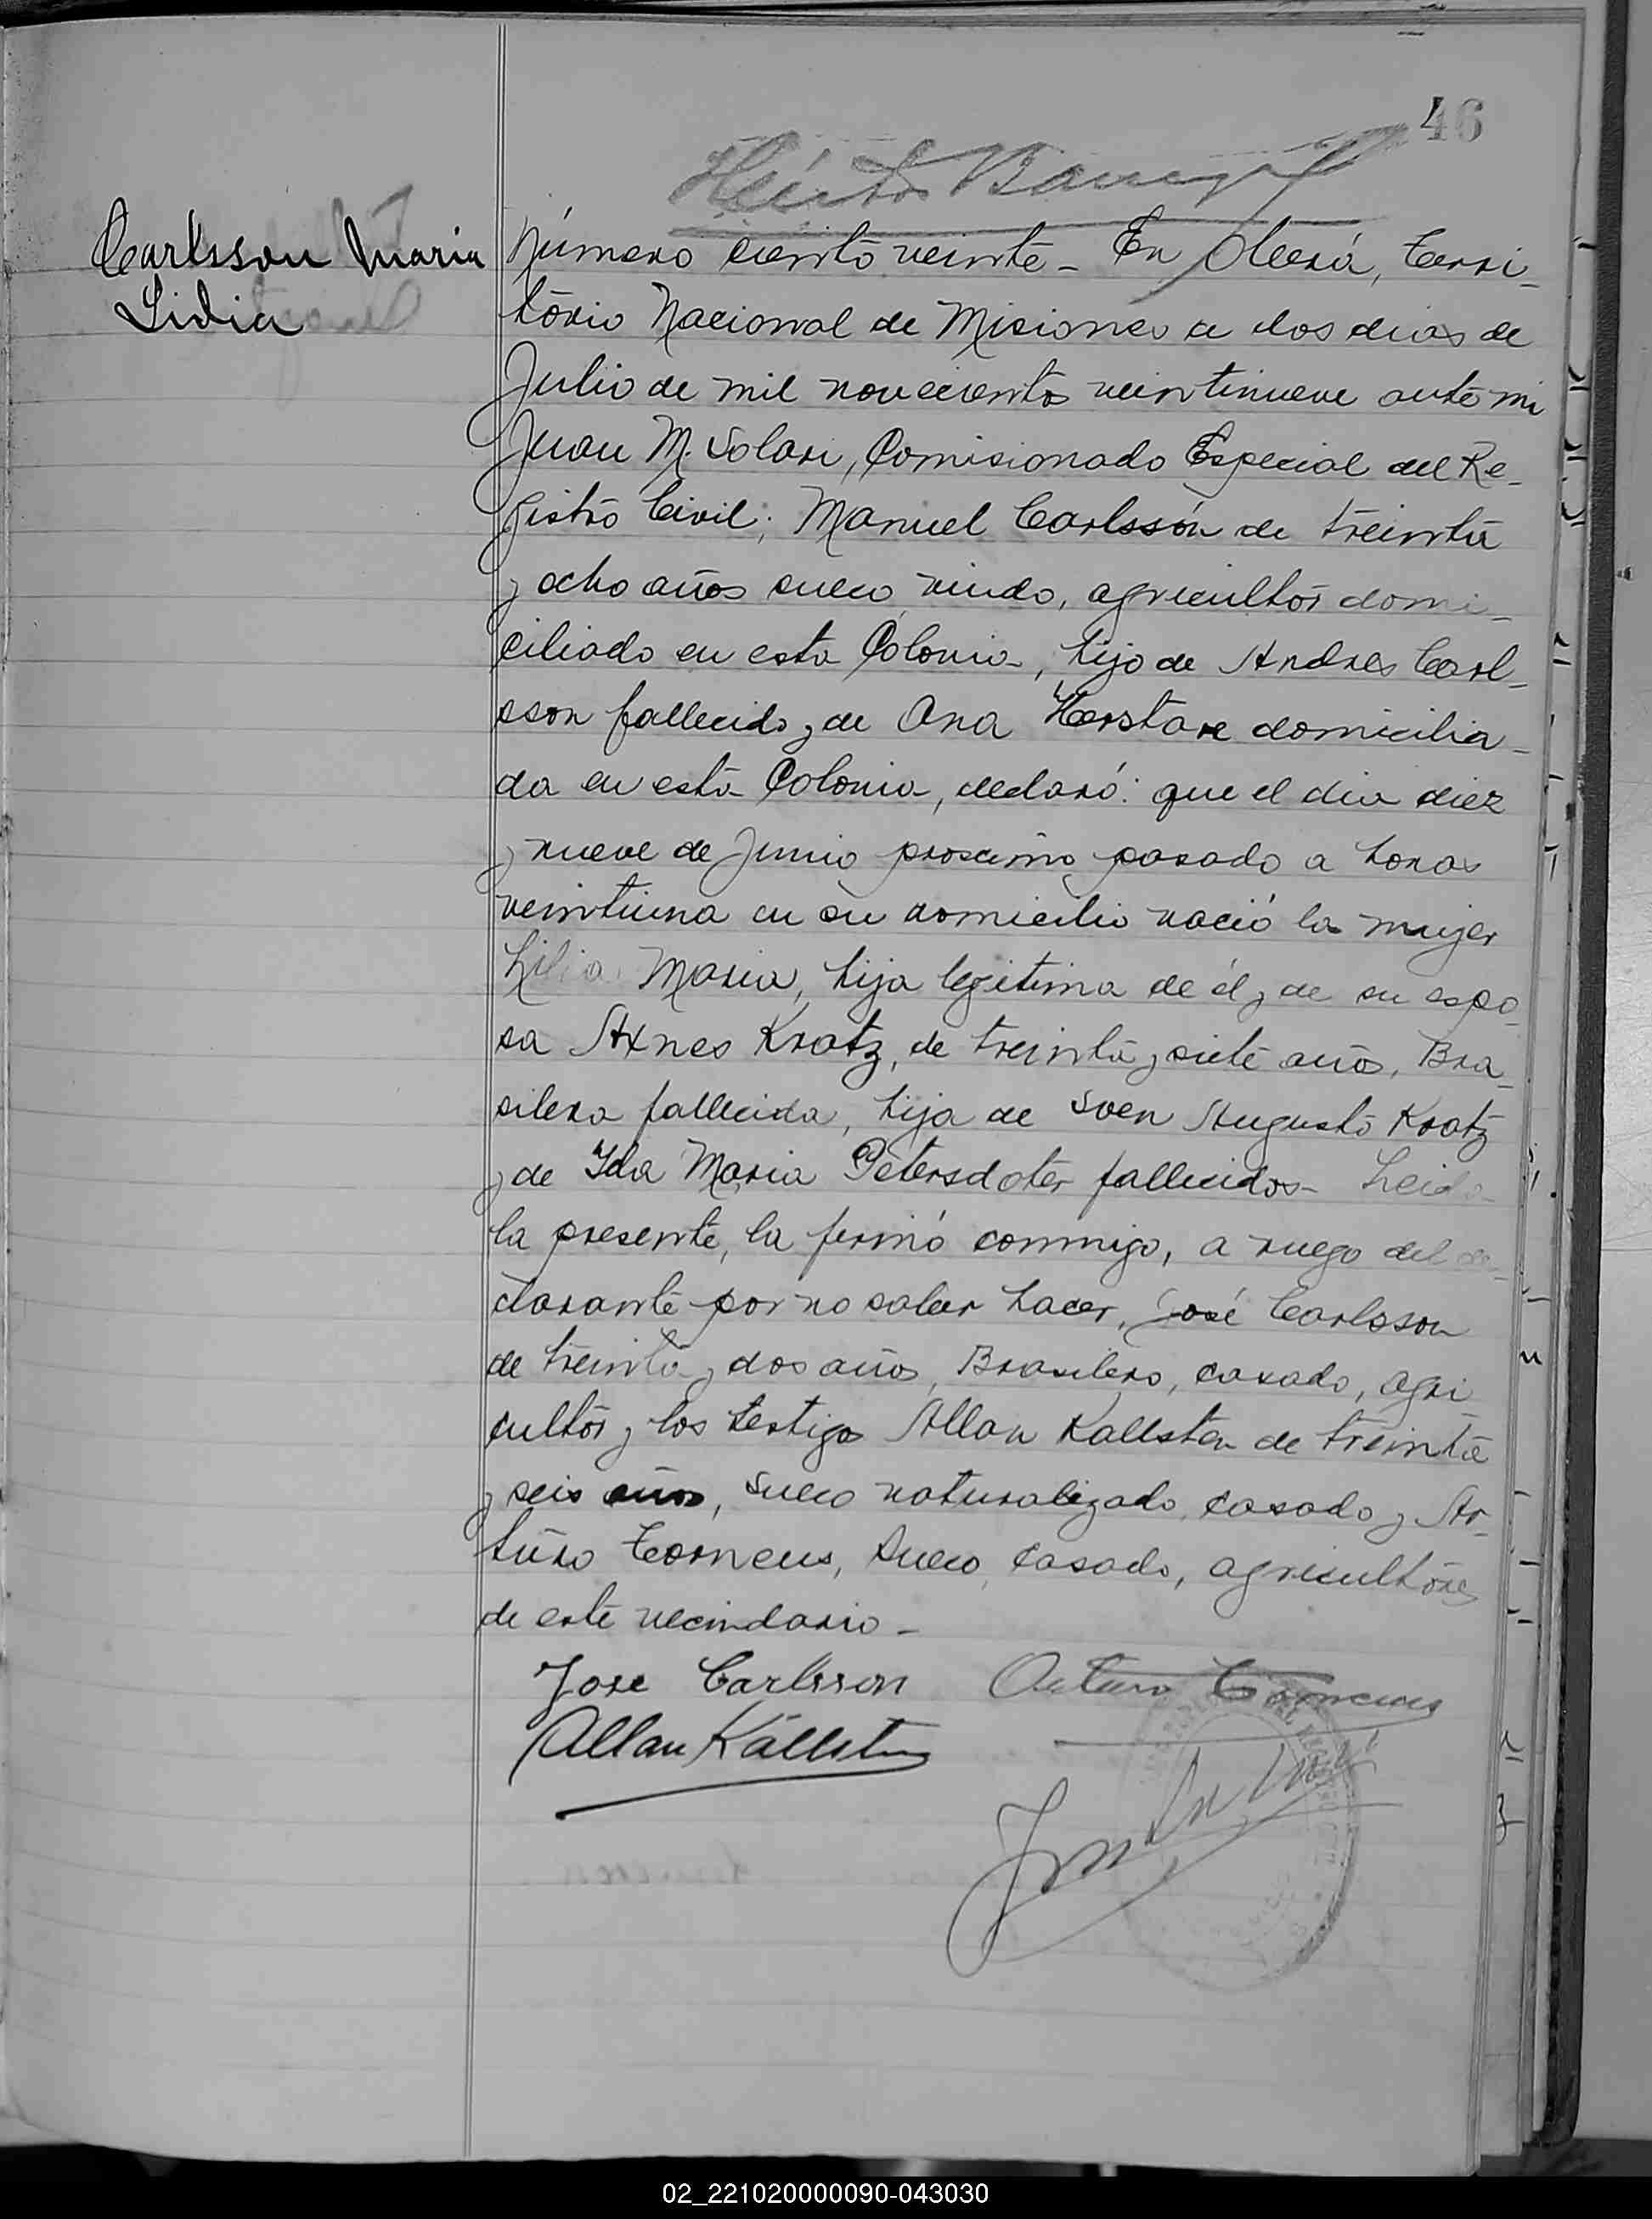 46
Carlsson Maria
Lidia
Número ciento veinte - En Oberá, Terri-
torio Nacional de Misiones a dos dias de
Julio de mil novecientos veintinueve ante mi
Juan M. Solari, Comisionado Especial del Re-
gistro Civil; Manuel Carlssón de treinta
y ocho años sueco, viudo, agricultor domi-
ciliado en esta Colonia, hijo de Andres Carl-
sson fallecido y de Ana domicilia-
da en esta Colonia, declaró: que el dia diez
y nueve de Junio proscimo pasado a horas
veintiuna en su domicilio nació la mujer
Maria, hija legitima de él y de su espo-
sa Axnes Kratz, de treinta y siete años, Bra-
silera fallecida, hija de Sven Augusto Kratz
y de Ida Maria Petersdoter fallecidos - Leida
la presente, la firmó conmigo, a ruego del de-
clarante por no saber hacer, José Carlsson
de treinta y dos años, Brasilero, casado, agri-
cultor y los testigos Allan Kallsten de treinta
y seis años, sueco naturalizado, casado y Ar-
turo Corneus, sueco, casado, agricultores
de este vecindario -
Jose Carlsson Arturo Corneus
Allan Källsten
02_221020000090-043030